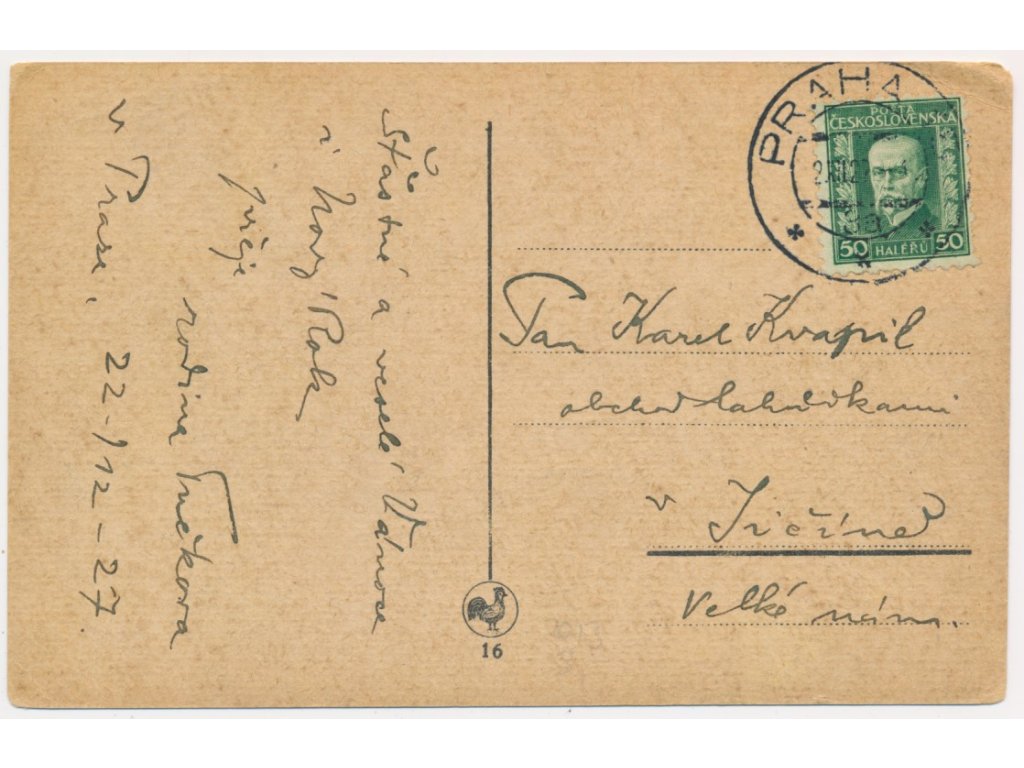 Šťastné a veselé Vánoce
i Nový Rok
přeje
rodina
v Praze, 22-/12-27
PRAHA
POŠTA
ČESKOSLOVENSKÁ
50 HALÉŘŮ 50
Pan Karel Kvapil
obchod lahůdkami
v Jičíně
Velké nám.
16